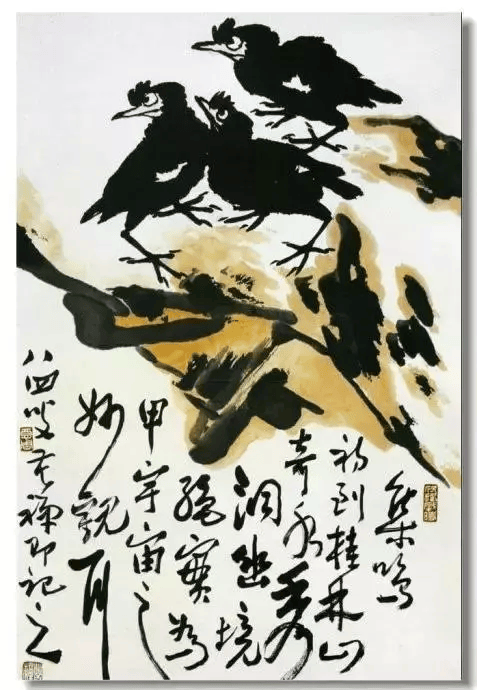 集鳴
初到桂林山
奇水秀
洞幽境
絕實為
甲宇宙之
妙觀耳
八四叟苦禪即記之